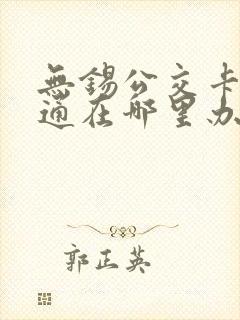 無錫公交卡
通在哪里办
郭正英